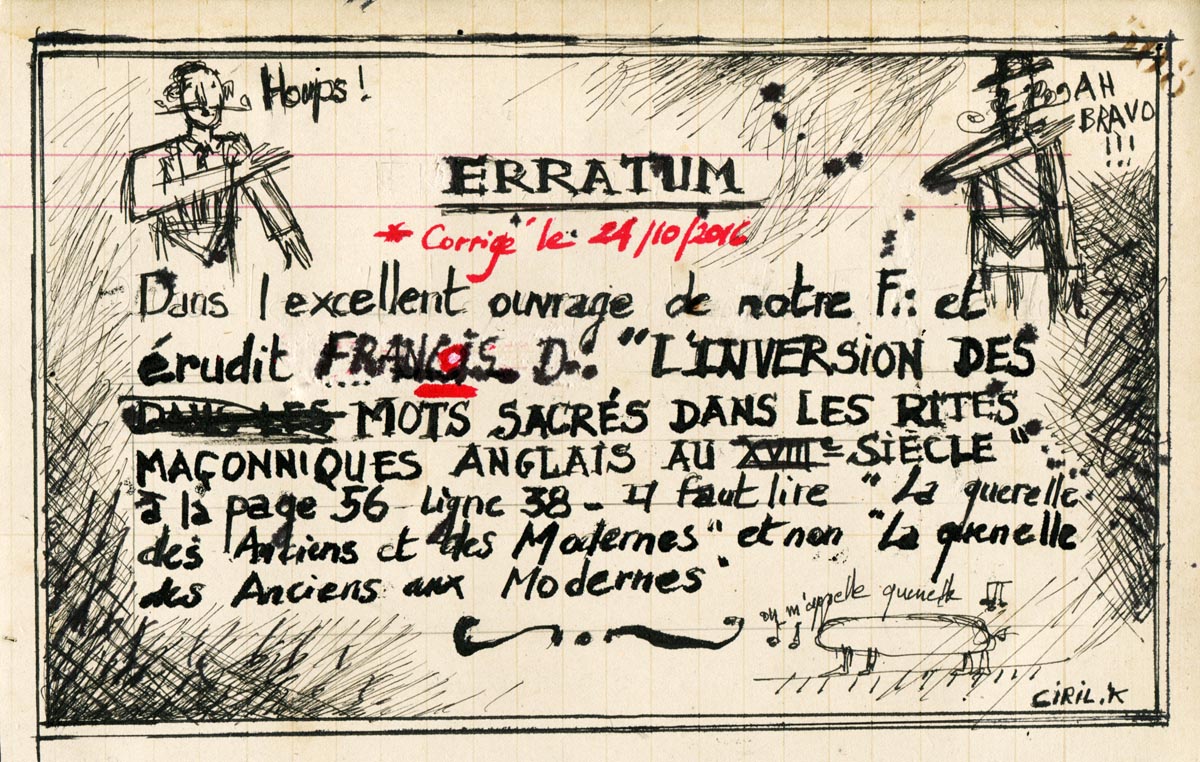 Houps !
AH
BRAVO
!!!
ERRATUM
* Corrigé le 24/10/2016
Dans l excellent ouvrage de notre F.: et
érudit FRANCIS D.. "L'INVERSION DES
MOTS SACRÉS DANS LES RITES
MAÇONNIQUES ANGLAIS AU XVIIIe SIÈCLE"
à la page 56 ligne 38 - Il faut lire "La querelle
des Anciens et des Modernes" et non "La quenelle
des Anciens aux Modernes"
on m'appelle quenelle
CIRIL.K